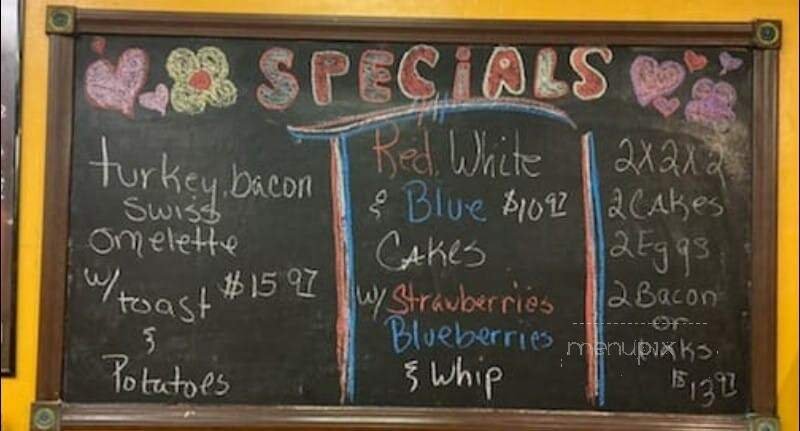 SPECiALS
turkey, bacon
Swiss
omelette
w/ toast $15 97
&
Potatoes
Red, White
& Blue $10 97
CAkes
w/ Strawberries
Blueberries
& Whip
2x2x2
2 CAkes
2 Eggs
2 Bacon
or
menupix
$13 97